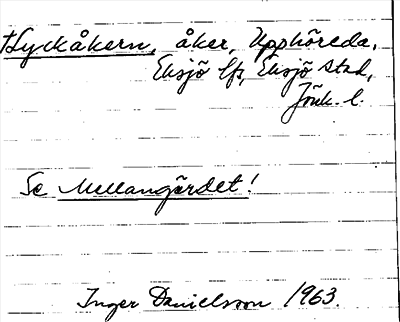 Hyckåkern, åker, Upphöreda,
Eksjö lfs, Eksjö stad,
Jönk. l.
Se Mellangärdet!
Inger Danielsson 1963.